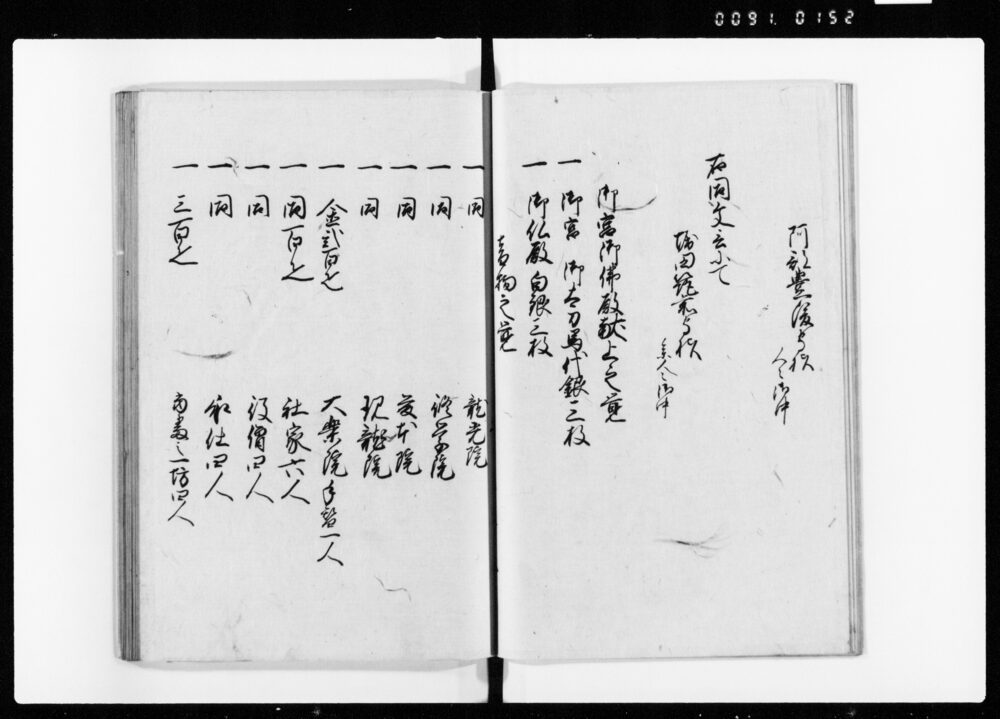 0091.0152
阿部豊後守様
人々御中
右同文言ニ而
堀田筑前守様
参人々御中
御宮御佛殿献上之覚
一 御宮 御太刀馬代銀三枚
一 御仏殿 白銀三枚
音物之覚
一 同 龍光院
一 同 修学院
一 同 院
一 同 現龍院
一 金弐百疋 大楽院手替一人
一 同百疋 社家六人
一 同 役僧四人
一 同 社仕四人
一 三百疋 之一坊四人